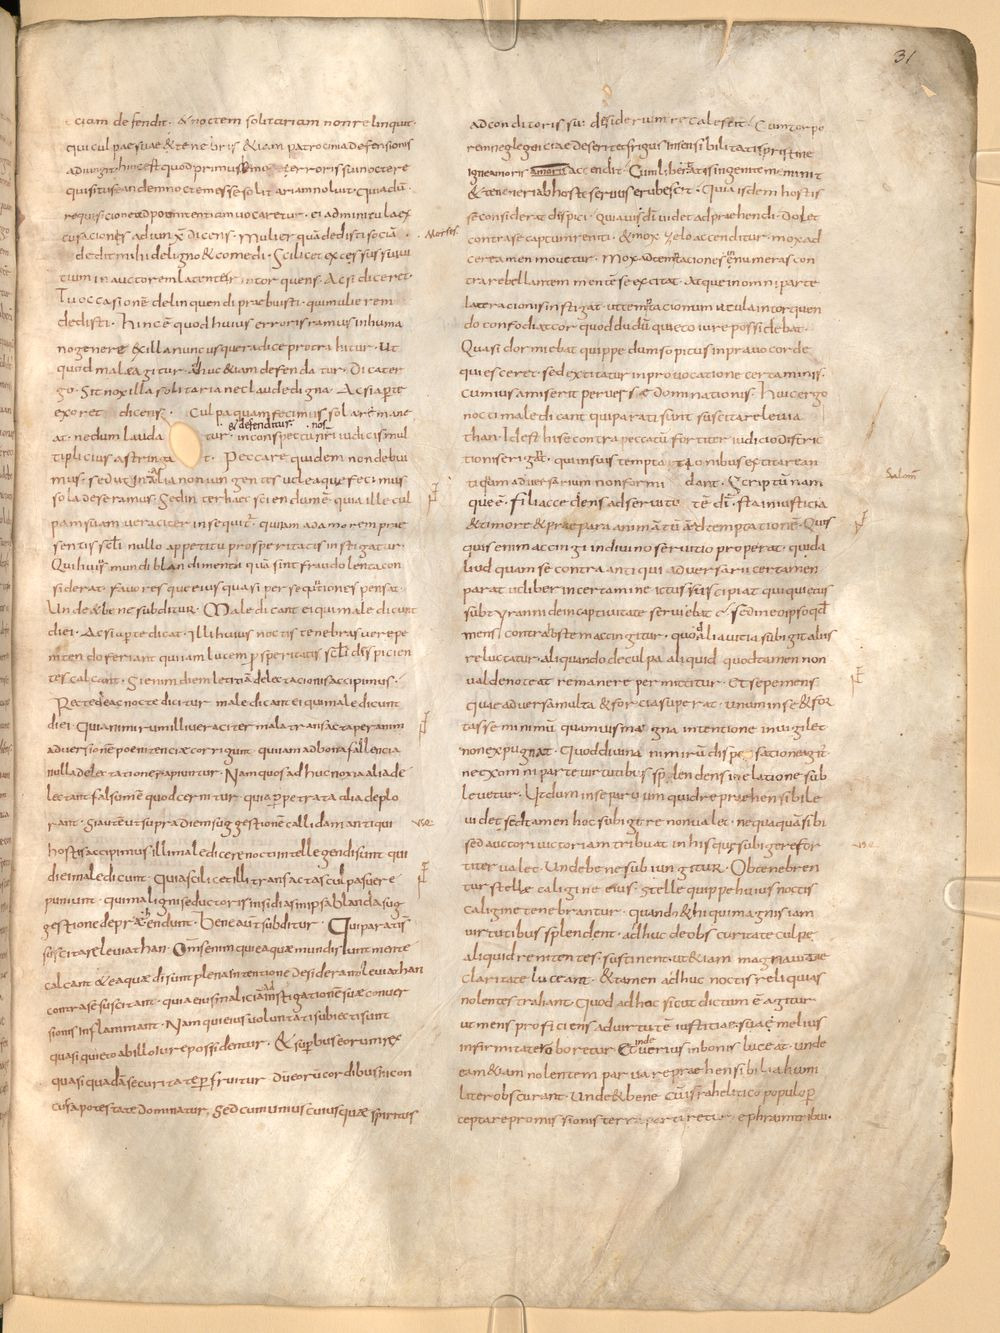 31
ciam defendit · a noctem solitariam non relinquit ·
qui culpae suae & tenebris & iam patrocinia defensionis
adiungit hinc est quod primus homo terroris sui noctere
quisitus eandem noctem esse solitariam noluit Quia dū ·
requisicione ad poenitentiam uocaretur · ei adminicula ex
cusacionis adiunxit dicens · Mulier quā dedisti sociā ·
Moses
dedit mihi de ligno & comedi · Scilicet excessus sui uui
tium in auctorem latenter intorquens · Ac si diceret ·
Tu occasionē delinquendi praebuisti · qui mulierem
dedisti · Hinc ē quod huius erroris ramus in huma
no genere ex illa nunc usque radice protrahitur · Ut
quod male agitur · adhuc & iam defendatur · Dicat er
go · Sit nox illa solitaria nec laude digna · Ac si aperte
exoret dicens · Culpa quam fecimus sola remane
at · ne dum lauda tur & defenditur · in conspectu nos tri iudicis mul
tiplicius astringa t · Peccare quidem non debui
mus · sed utinam alia non iungentes uel ea que fecimus
sola deseramus · Sed inter haec sciendum ē · quia ille cul
pam suam ueraciter insequitr · qui iam ad amorem prae
sentis scli nullo appetitu prosperitatis instigatur ·
Qui huius mundi blandimenta quā sint fraudolenta con
siderat · fauores que eius quasi persequtiones pensat ·
Unde & bene subditur · Maledicant ei qui maledicunt
diei · Ac si aperte dicat · Illi huius noctis tenebras uere pe
nitendo feriant qui iam lucem prosperitatis scli despicien
tes calcant · Si enim diem letitiā delectacionis accipimus ·
Recte de hac nocte dicitur maledicant ei qui maledicunt
diei · Quia nimirum illi ueraciter mala transacta per anim
aduersionē poenitenciae corrigunt · qui iam ad bona fallencia
nulla delectatione rapiuntur · Nam quos adhuc noxia alia de
lectant falsum ē quod cernitur quia perpetrata alia deplo
rant · Si autē ut supra diem suggestionē callidam antiqui
hostis accipimus illi maledicere nocti intellegendi sunt qui
diei maledicunt · Quia scilicet illi transactas culpas uere
puniunt · qui maligni seductoris insidias in ipsa blanda sug
gestione deprehendunt · Bene aut subditur · Qui parati s
suscitare leuiathan · Omnes enim qui ea quae mundi sunt mente
calcant & ea quae di sunt plena intentione desiderant leuiathan
contra se suscitant · quia eius maliciā instigatione suae conuer
sionis inflammant · Nam qui eius uoluntati subiecti sunt
quasi quieto ab illo iure possidentur · & superbus eorum rex
quasi quadā securitate perfruitur · dū eorū cordibus incon
cussa potestate dominatur, Sed cum unius cuiusque spiritus
ad conditoris sui desiderium recalescit · Cum torpo
rem neglegenciae deserit & frigus insensibilitatis pristine
igne amoris amoris accendit · Cum libertatis ingenite meminit
& teneri ab hoste seruus erubescit · Quia isdem hostis
se considerat dispici · Quia uias di uidet adpraehendi · dolet
contra se captum reniti · & mox zelo accenditur · mox ad
certamen mouetur · Mox ad temptationes innumeras con
tra rebellantem mentē se excitat · Atque in omni parte
lacerationis instigat · ut temptacionum iacula intorquen
do confodiat cor quod dudū quieto iure possidebat ·
Quasi dormiebat quippe dum sopitus in prauo corde
quiesceret · sed excitatur in prouocatione certaminis ·
Cum ius amiserit peruersae dominationis · Huic ergo
nocti maledicant qui parati sunt suscitare leuia
than · Id est hi se contra peccatū fortiter iudicio distric
tionis erigant · qui in suis tempta tionibus excitare an
tiquum aduersarium non formi dant · Scriptū nam
Salom̄
que ē · Fili accedens ad seruitu tē di · sta in iusticia
& timore & praepara animā tuā ad temptationē · Quis
quis enim accingi in diuino seruitio properat · quid a
liud quam se contra antiqui aduersarii certamen
parat ut liber in certamine ictus suscipiat qui quietus
sub tyranni de in captiuitate seruiebat · Sed in eo ipso qd
mens contra hostem accingitur · quod alia uicia subigit aliis
reluctatur · aliquando de culpa aliquid quod tamen non
ualde noceat remanere permittitur · Et sepe mens
que aduersa multa & forcia superat · unum in se & for
tasse minimū quamuis magna intentione inuigilet
non expugnat · Quod diuina nimirū dispe satione agitr ·
ne ex omni parte uirtutibus splendens in elatione sub
leuetur · Ut dum in se paruum quid reprehensibile
uidet · sed tamen hoc subigere non ualet · nequaquā sibi
sed auctori uictoriam tribuat in his que subigere for
titer ualet · Unde bene subiungitur · Obtenebren
tur stellae caligine eius · Stelle quippe huius noctis
caligine tenebrantur · quando & hi qui magnis iam
uirtutibus splendent · adhuc de obscuritate culpe
aliquid renitentes sustinent · ut & iam magna uitae
claritate luceant · & tamen adhuc noctis reliquias
nolentes trahant · Quod ad hoc sicut dictum ē agitur
ut mens proficiens ad uirtutē iustitiae · sua melius
infirmitate roboretur Et inde uerius in bonis luceat · unde
eam & iam nolentem parua reprehensibilia humi
liter obscurant · Unde & bene cum israhelitico populo per
ceptae repromissionis terra partiretur, ephraim tribui ·